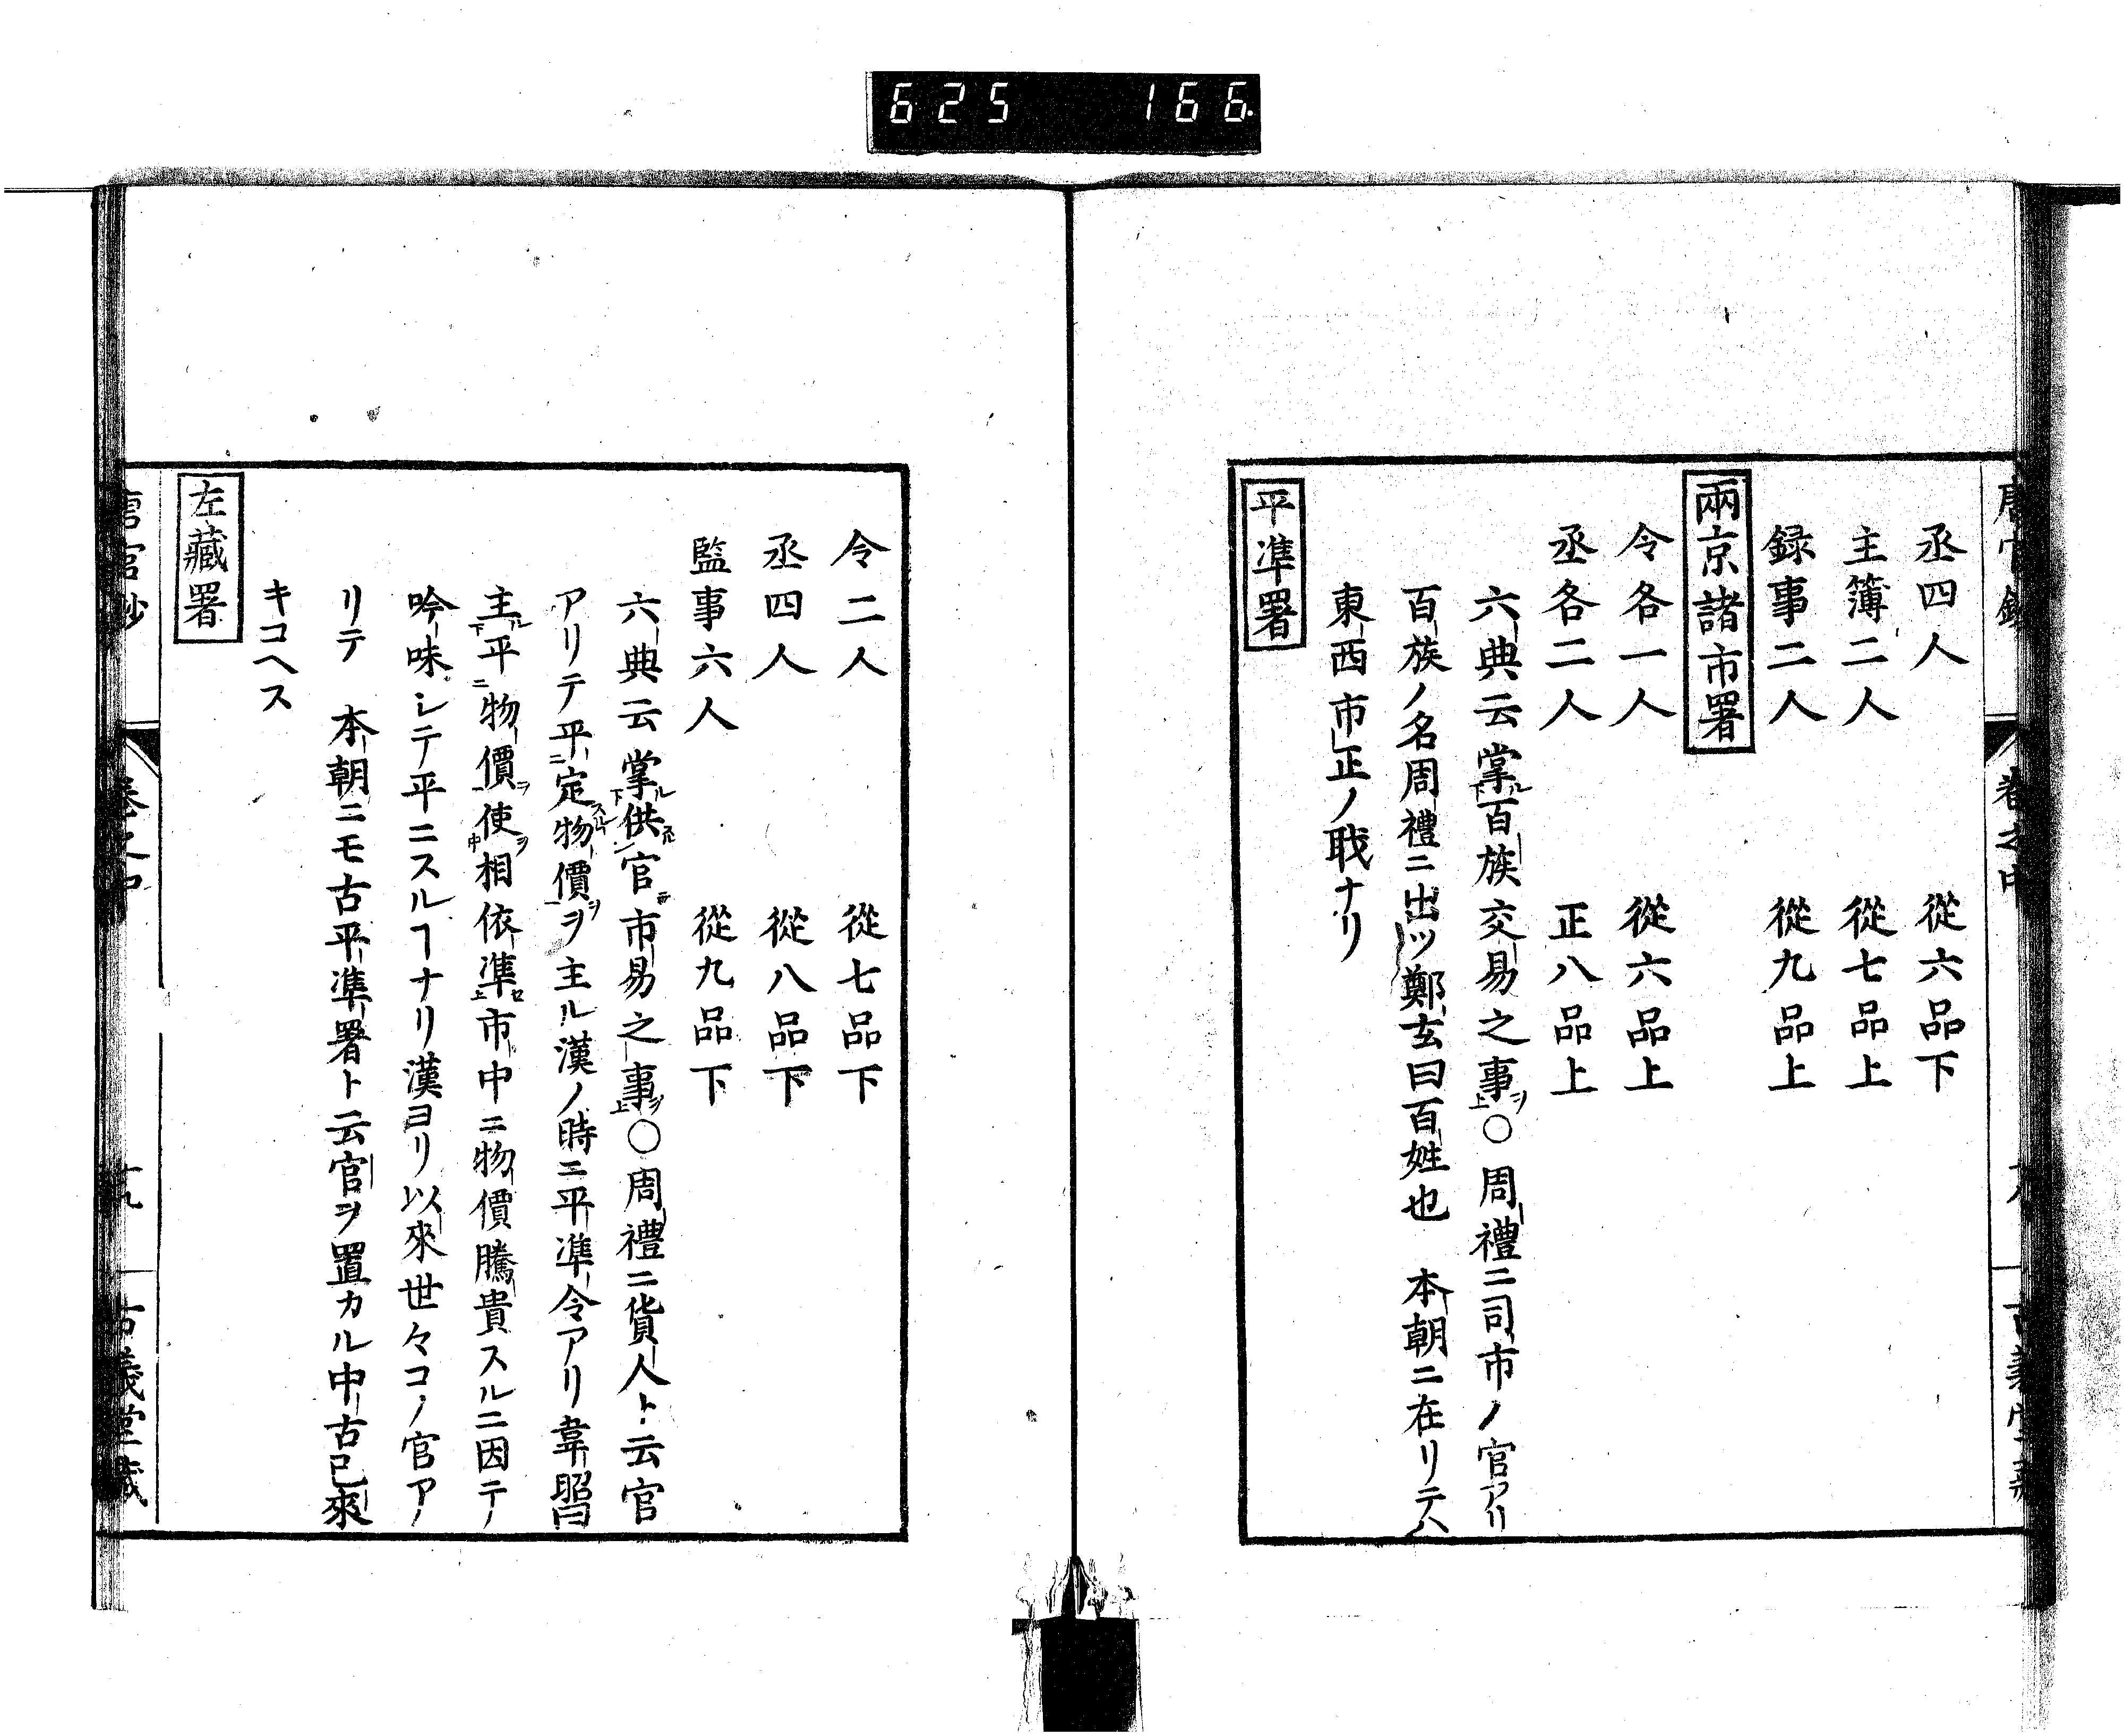 625 166
丞四人 從六品下
主簿二人 從七品上
録事二人 從九品上
兩京諸市署
令各一人 從六品上
丞各二人 正八品上
六典云掌ル下百族交易之事ヲ上○周禮ニ司市ノ官アリ
百族ノ名周禮ニ出ツ鄭玄曰百姓也 本朝ニ在リテハ
東西市正ノ職ナリ
平準署
令二人 從七品下
丞四人 從八品下
監事六人 從九品下
六典云掌ル下供官市易之事ヲ上○周禮ニ貨人ト云官
アリテ平ニ定物價ヲ主ル漢ノ時ニ平準令アリ韋昭曰
主ル下平ニ物價ヲ使ヲ中相依準セ上市中ニ物價騰貴スルニ因テ
吟味シテ平ニスルヿナリ漢ヨリ以來世々コノ官アリ
リテ 本朝ニモ古平準署ト云官ヲ置カル中古已來
キコヘス
左藏署
唐官鈔 卷之中 古義堂藏